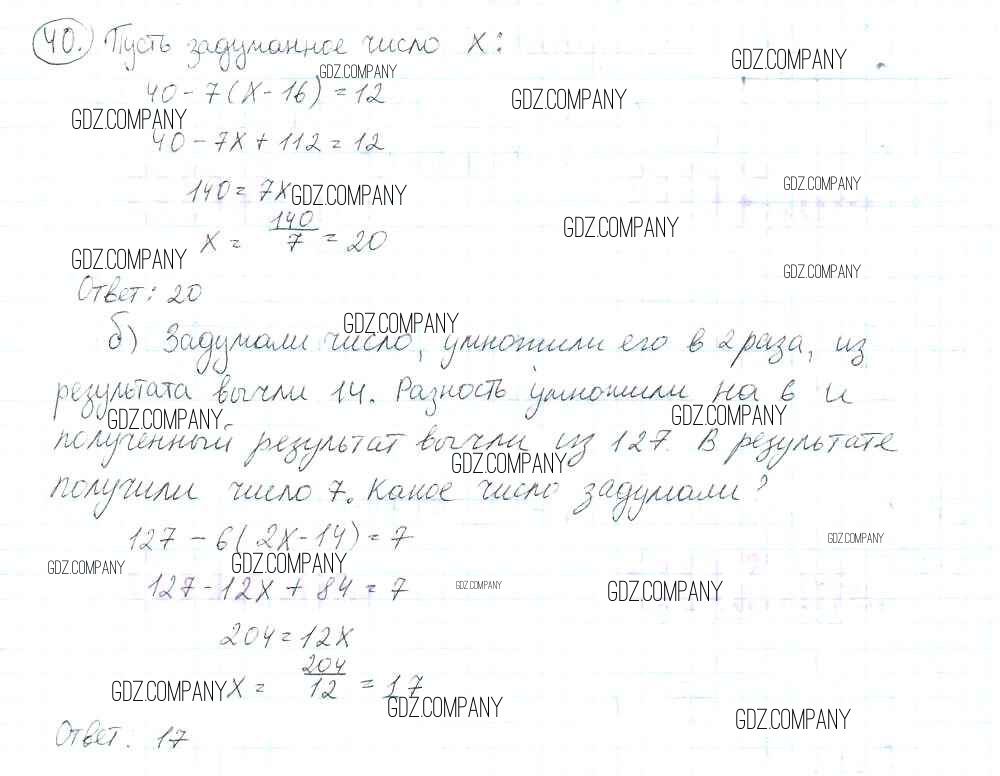 40. Пусть задуманное число X:
GDZ.COMPANY
GDZ.COMPANY
40 - 7(X - 16) = 12
GDZ.COMPANY
GDZ.COMPANY
40 - 7X + 112 = 12
140 = 7X
GDZ.COMPANY
GDZ.COMPANY
X = 140/7 = 20
GDZ.COMPANY
GDZ.COMPANY
GDZ.COMPANY
Ответ: 20
GDZ.COMPANY
б) Задумали число, умножили его в 2 раза, из
результата вычли 14. Разность умножили на 6 и
GDZ.COMPANY
GDZ.COMPANY
полученный результат вычли из 127. В результате
GDZ.COMPANY
получили число 7. Какое число задумали?
127 - 6(2X - 14) = 7
GDZ.COMPANY
GDZ.COMPANY
GDZ.COMPANY
127 - 12X + 84 = 7
GDZ.COMPANY
GDZ.COMPANY
204 = 12X
X = 204/12 = 17
GDZ.COMPANY
GDZ.COMPANY
GDZ.COMPANY
Ответ. 17